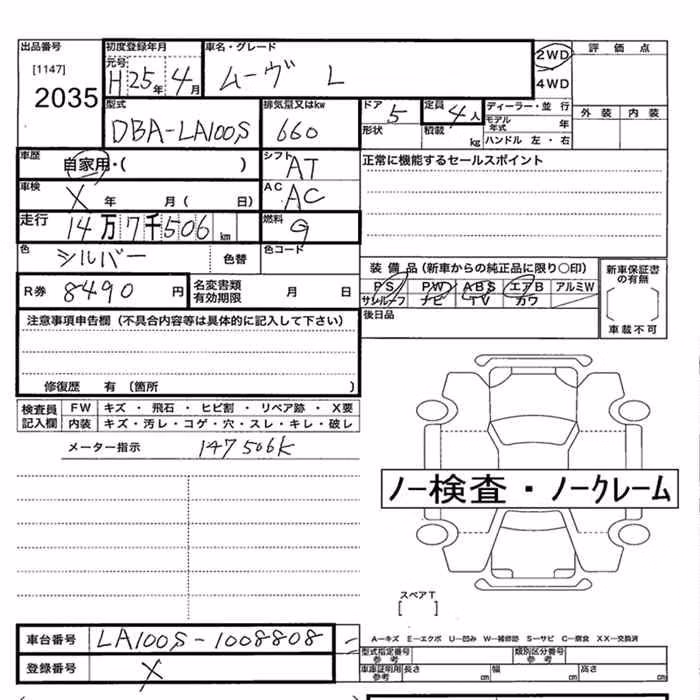 出品番号
[1147]
2035
初度登録年月
元号
H25年4月
車名・グレード
ムーヴ L
2WD
4WD
評価点
外装 内装
型式
DBA-LA100S
排気量又はkw
660
ドア 5
形状
定員 4人
積載 kg
ディーラー・並行
モデル年式 年
ハンドル 左・右
車歴 自家用・( )
シフト AT
正常に機能するセールスポイント
車検 X 年 月( 日)
AC AC
走行 14万7千506km
燃料 G
色 シルバー 色替
色コード
R券 8490円
名変書類有効期限 月 日
装備品(新車からの純正品に限り○印)
PS PW ABS エアB アルミW
サンルーフ ナビ TV カワ
新車保証書の有無
車載不可
後日品
注意事項申告欄(不具合内容等は具体的に記入して下さい)
修復歴 有(箇所 )
検査員記入欄
FW キズ・飛石・ヒビ割・リペア跡・X要
内装 キズ・汚レ・コゲ・穴・スレ・キレ・破レ
メーター指示 147506K
ノー検査・ノークレーム
スペアT
[ ]
車台番号 LA100S-1008808
登録番号 X
A―キズ E―エクボ U―凹み W―補修跡 S―サビ C―腐食 XX―交換済
型式指定番号参考
類別区分番号参考
車庫証明用参考 長さ cm 幅 cm 高さ cm